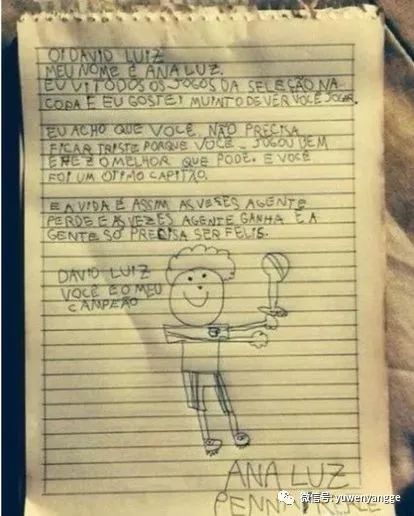 OI DAVID LUIZ
MEU NOME É ANA LUZ.
EU VI TODOS OS JOGOS DA SELEÇÃO NA
COPA E EU GOSTEI MUINTO DE VER VOCÊ JOGAR.
EU ACHO QUE VOCÊ NÃO PRECISA
FICAR TRISTE PORQUE VOCÊ JOGOU BEM
E FEZ O MELHOR QUE PODE. E VOCÊ
FOI UM OTIMO CAPITÃO.
E A VIDA É ASSIM AS VESES AGENTE
PERDE E AS VEZES AGENTE GANHA E A
GENTE SÓ PRECISA SER FELIS.
DAVID LUIZ
VOCÊ É O MEU
CAMPEÃO
ANA LUZ
微信号: yuwenyangge